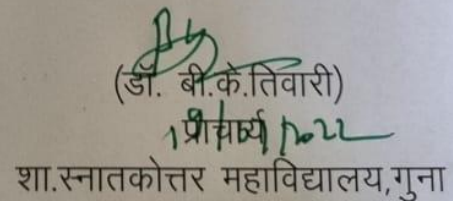 (डॉ. बी.के.तिवारी)
प्राचार्य
शा.स्नातकोत्तर महाविद्यालय,गुना